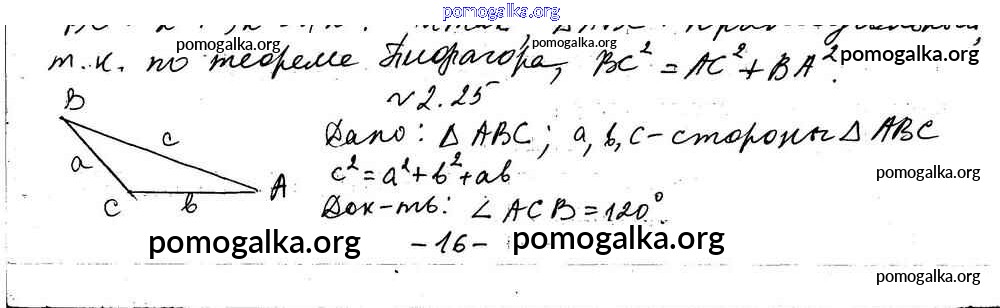 pomogalka.org
pomogalka.org
pomogalka.org
т.к. по теореме Пифагора, BC² = AC² + BA².
pomogalka.org
~ 2.25
B
c
a
C
b
A
Дано: △ ABC; a, b, c - стороны △ ABC
c² = a² + b² + ab
pomogalka.org
Док-ть: ∠ ACB = 120°.
pomogalka.org
- 16 -
pomogalka.org
pomogalka.org